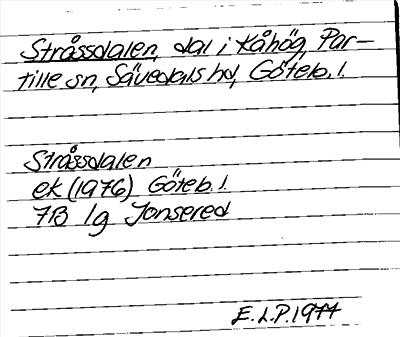 Stråssdalen, dal i Kåhög, Par-
tille sn, Sävedals hd, Göteb. l.
Stråssdalen
ek (1976) Göteb. l.
7B 1g Jonsered
E.L.P. 1977